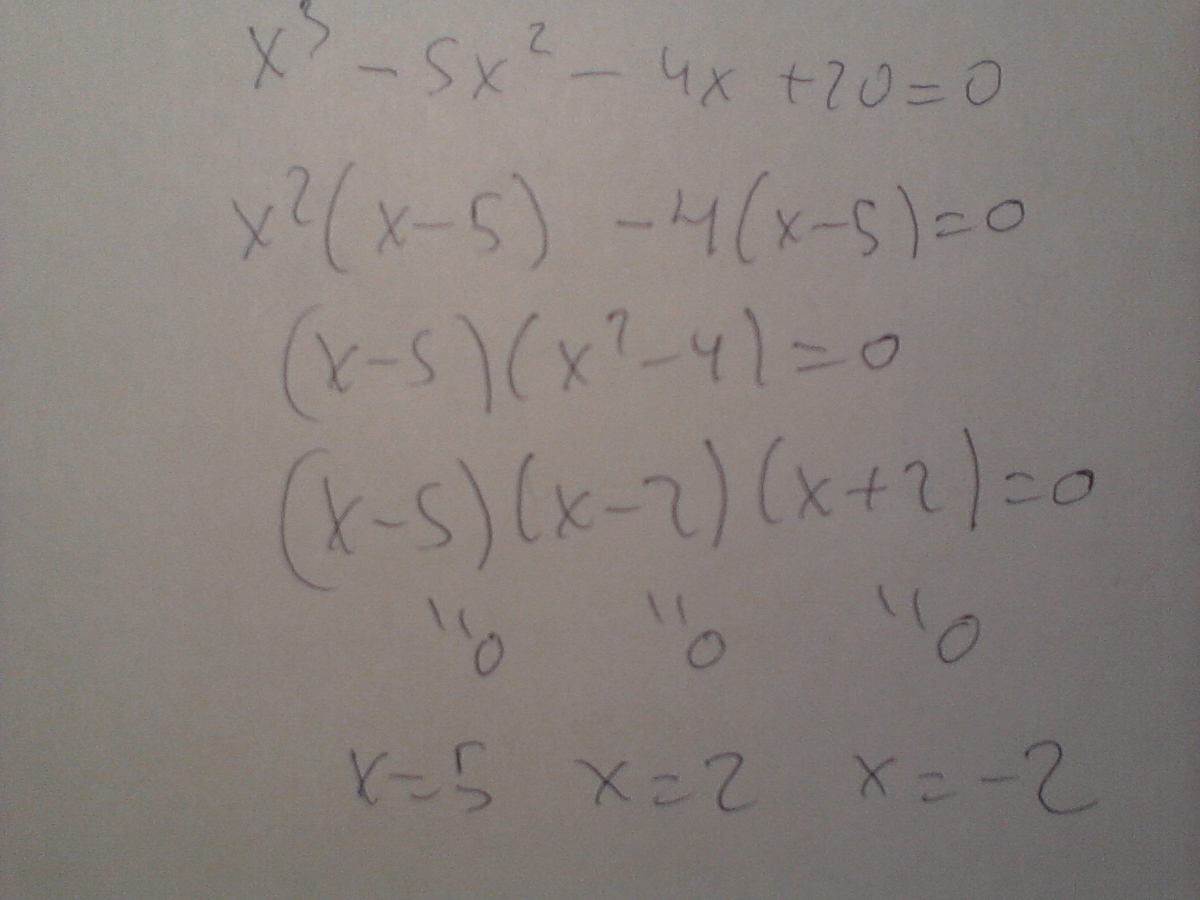 x³ - 5x² - 4x + 20 = 0
x²(x - 5) - 4(x - 5) = 0
(x - 5)(x² - 4) = 0
(x - 5)(x - 2)(x + 2) = 0
"0 "0 "0
x = 5 x = 2 x = -2